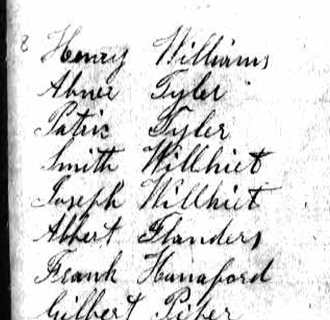 8 Henry Williams
Abner Tyler
Patric Tyler
Smith Willhiet
Joseph Willhiet
Albert Flanders
Frank Hanaford
Gilbert Piper